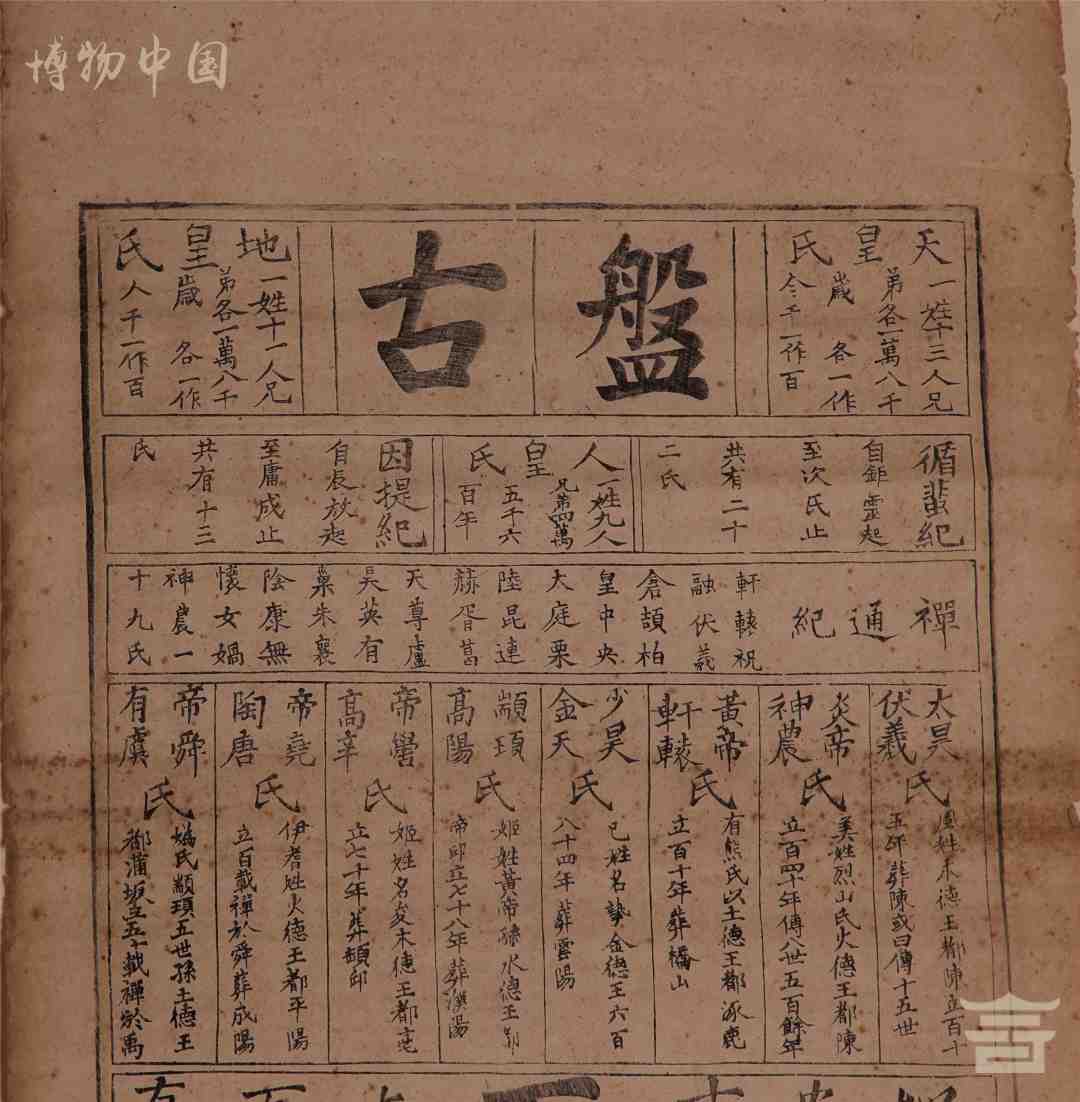 博物中国
天皇氏
一姓十三人兄
弟各一萬八千
歲 各一作
今千一作百
盤古
地皇氏
一姓十一人兄
弟各一萬八千
歲 各一作
人千一作百
循蜚紀
自鉅靈起
至次氏止
共有二十
二氏
人皇氏
一姓九人
兄弟四萬
五千六
百年
因提紀
自辰放起
至庸成止
共有十三
氏
禪通紀
軒轅祝
融伏羲
倉頡柏
皇中央
大庭栗
陸昆連
赫胥葛
天尊盧
吴英有
巢朱襄
陰康無
懷女媧
神農一
十九氏
太昊
伏羲
氏
風姓木德王都陳立百十
五年葬陳或曰傳十五世
炎帝
神農
氏
姜姓烈山氏火德王都陳
立百四十年傳八世五百餘年
黃帝
軒轅
氏
有熊氏以土德王都涿鹿
立百十年葬橋山
少昊
金天
氏
已姓名摯金德王六百
八十四年葬雲陽
顓頊
高陽
氏
姬姓黃帝孫水德王都
帝邱立七十八年葬濮陽
帝嚳
高辛
氏
姬姓名夋木德王都亳
立七十年葬頓邱
帝堯
陶唐
氏
伊耆姓火德王都平陽
立百載禪於舜葬成陽
帝舜
有虞
氏
媯氏顓頊五世孫土德王
都蒲坂立五十載禪於禹